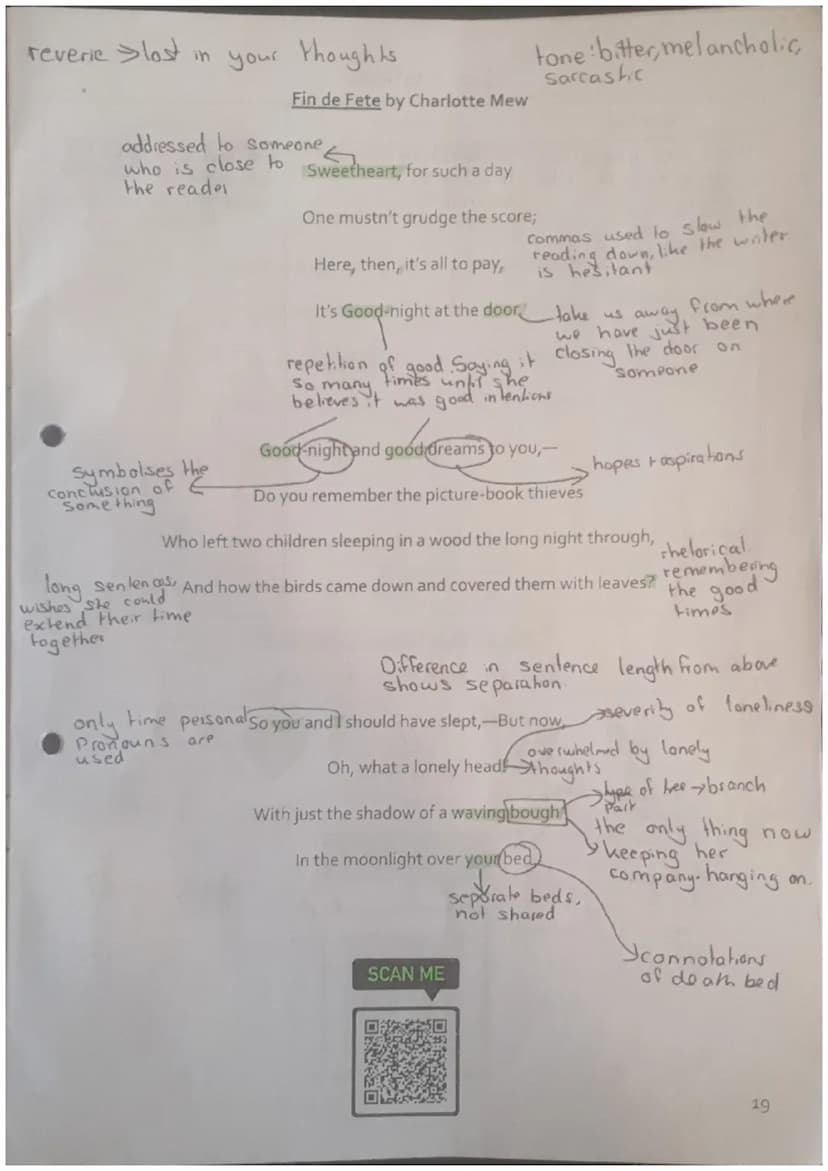 reverie → lost in your thoughts
tone: bitter, melancholic,
sarcastic
Fin de Fete by Charlotte Mew
addressed to someone
who is close to
the reader
Sweetheart, for such a day
One mustn't grudge the score;
commas used to slow the
reading down, like the writer
is hesitant
Here, then, it's all to pay,
It's Good-night at the door.
take us away from where
we have just been
closing the door on
someone
repetition of good. Saying it
so many times until she
believes it was good intentions
Good-night and good dreams to you,—
hopes + aspirations
symbolises the
conclusion of
something
Do you remember the picture-book thieves
Who left two children sleeping in a wood the long night through,
rhetorical
remembering
the good
times
And how the birds came down and covered them with leaves?
long sentences,
wishes she could
extend their time
together
Difference in sentence length from above
shows separation.
only time personal
pronouns are
used
So you and I should have slept,—But now,
→severity of loneliness
Oh, what a lonely head!
overwhelmed by lonely
→thoughts
With just the shadow of a waving bough
→type of tree→branch
part
the only thing now
keeping her
company. hanging on.
In the moonlight over your bed.
separate beds,
not shared
connotations
of death bed
SCAN ME
19